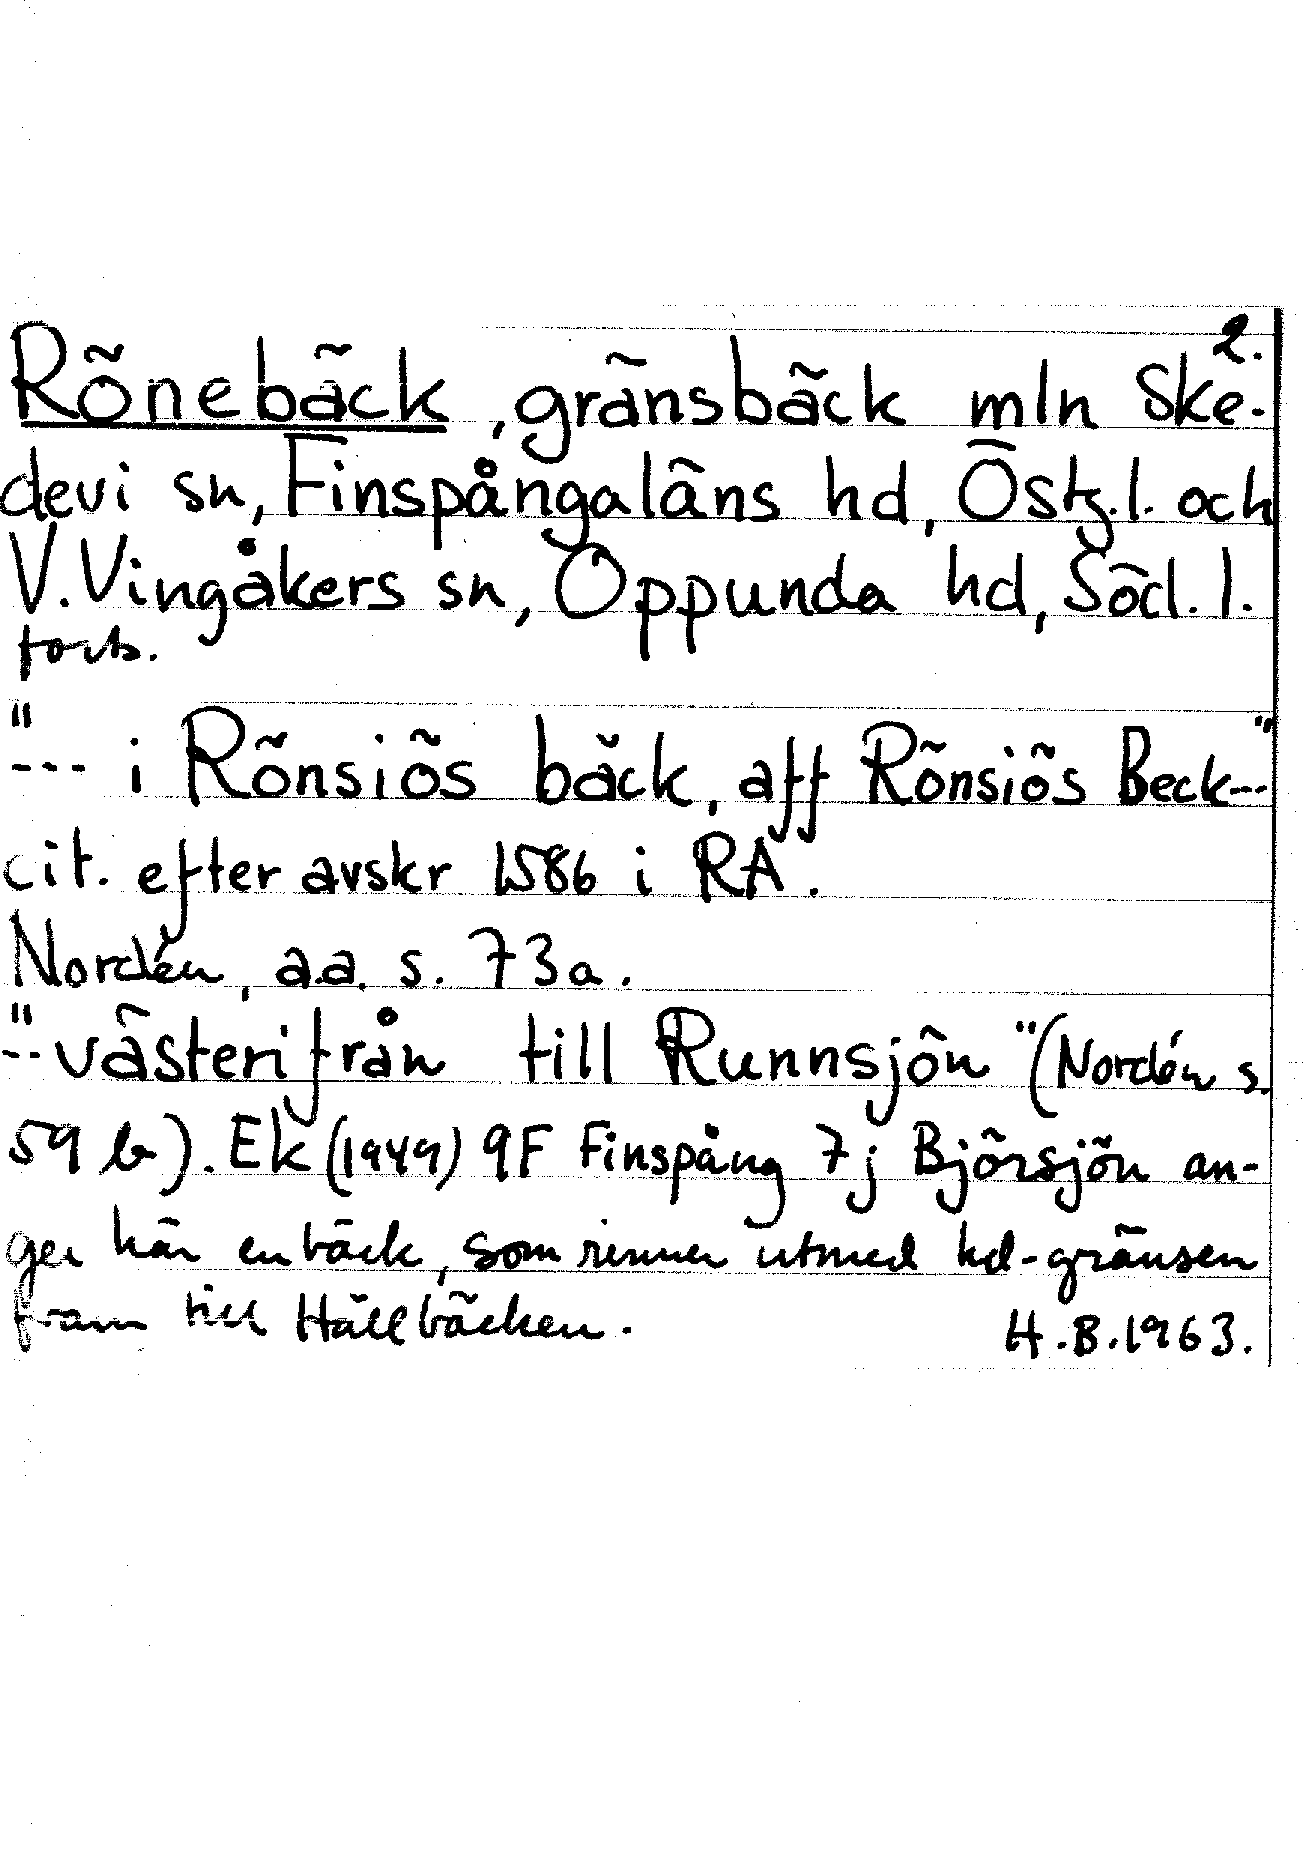 2.
Rönebäck, gränsbäck mln Ske-
devi sn, Finspångaläns hd, Östg.l. och
V. Vingåkers sn, Oppunda hd, Söd. l.
forts.
"--- i Rönsiös bäck, aff Rönsiös Beck---"
cit. efter avskr 1586 i RA.
Nordén, a.a. s. 73a.
"-- västerifrån till Runnsjön" (Nordén s.
59 b). Ek (1949) 9F Finspång 7j Björsjön an-
ger här en bäck, som rinner utmed hd-gränsen
fram till Hällbäcken. H.B. 1963.